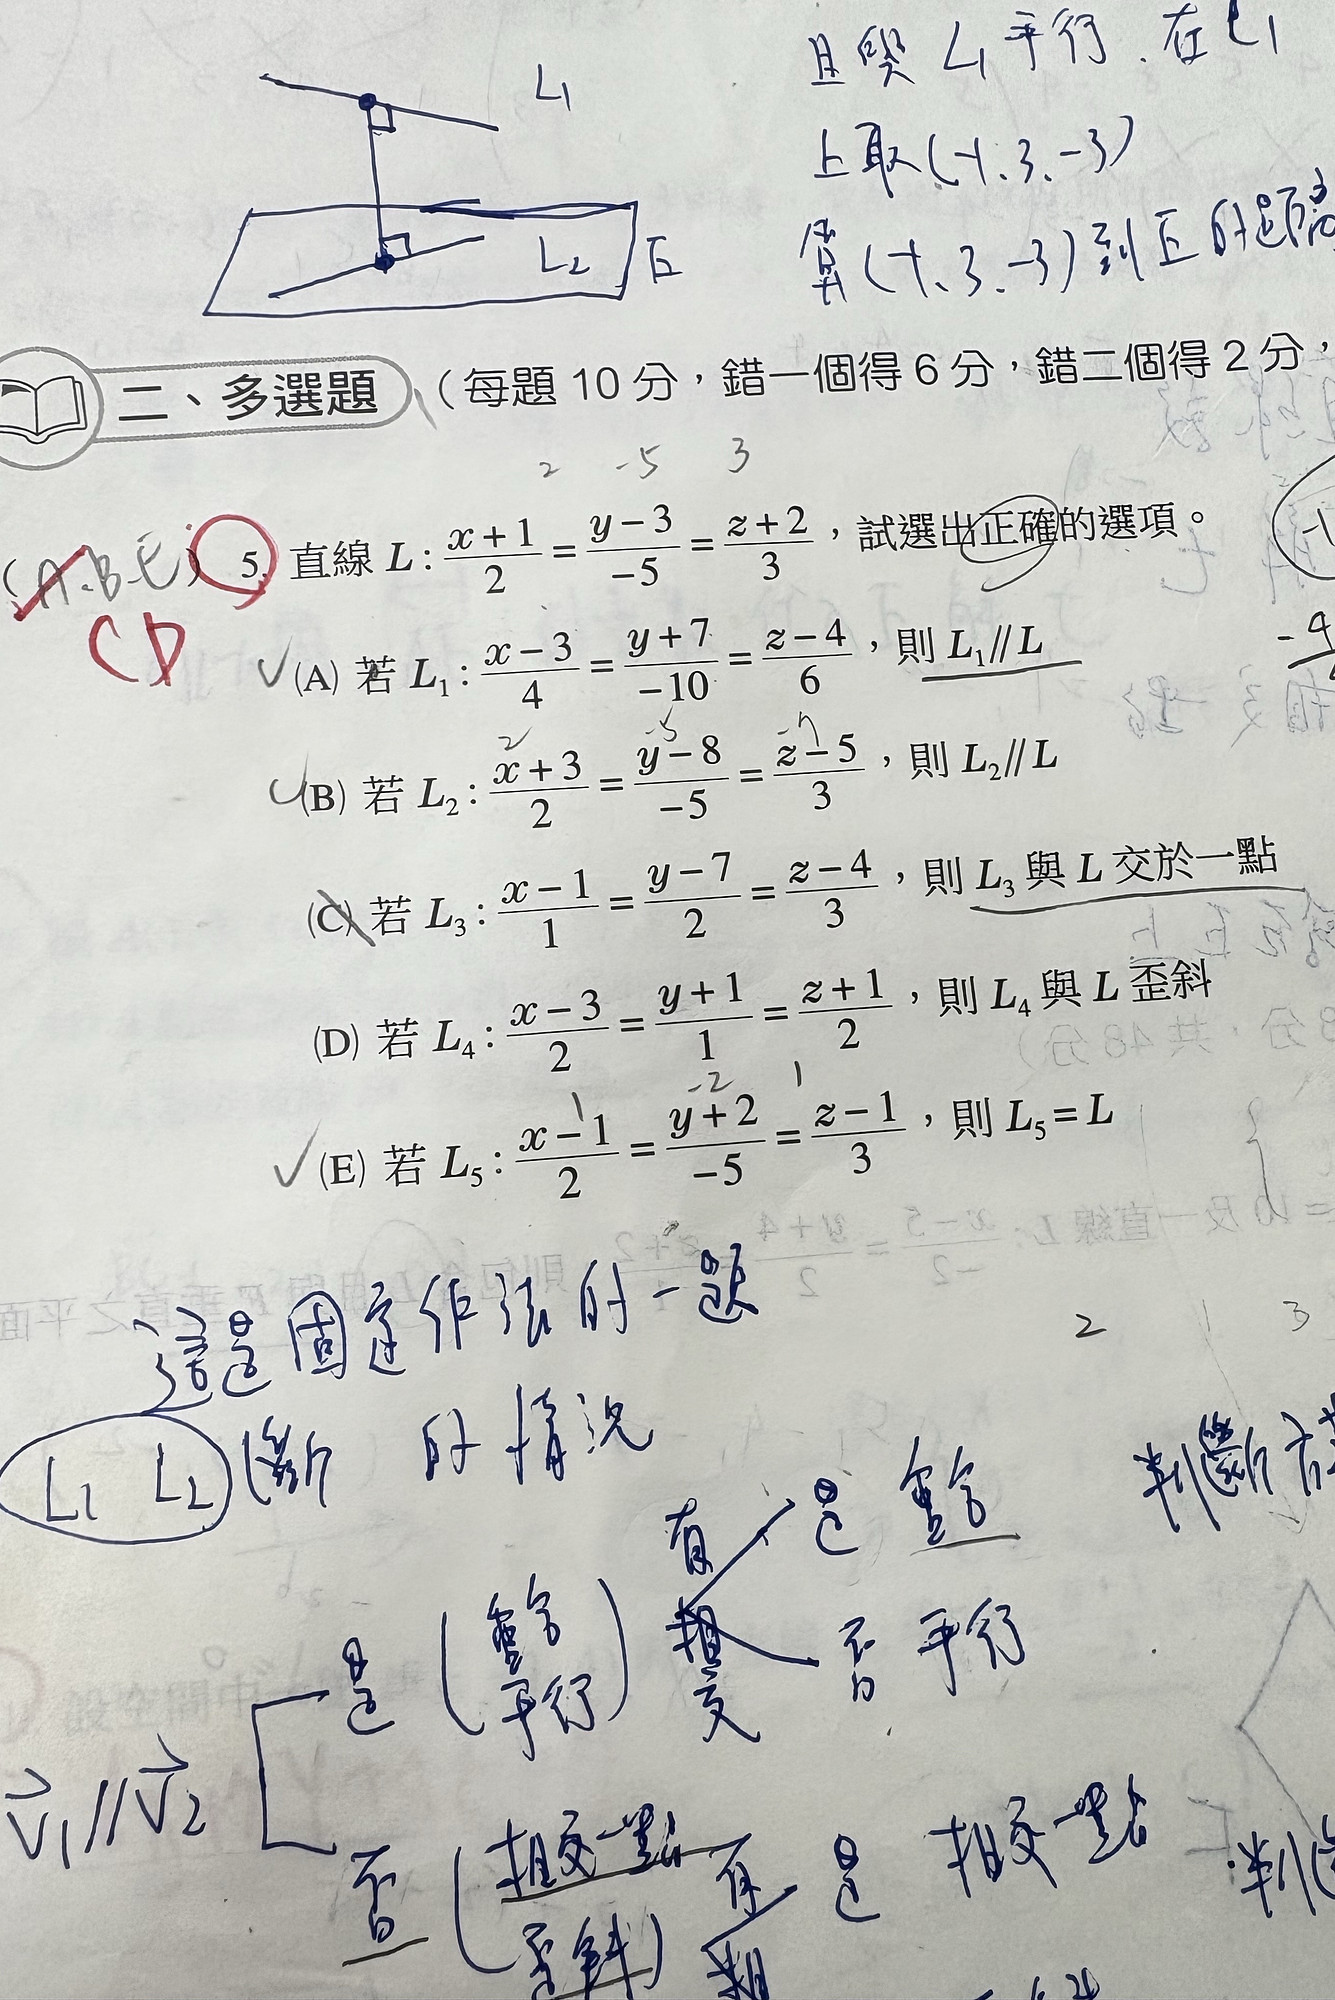 L₁
且與 L₁ 平行. 在 L₁
上取(-1, 3, -3)
L₂ E
算(-1, 3, -3)到E的距離
二、多選題 (每題 10 分，錯一個得 6 分，錯二個得 2 分，
2 -5 3
(A.B.E) 5. 直線 L : (x+1)/2 = (y-3)/-5 = (z+2)/3 ，試選出正確的選項。
CD
(A) 若 L₁ : (x-3)/4 = (y+7)/-10 = (z-4)/6 ，則 L₁ // L
(B) 若 L₂ : (x+3)/2 = (y-8)/-5 = (z-5)/3 ，則 L₂ // L
(C) 若 L₃ : (x-1)/1 = (y-7)/2 = (z-4)/3 ，則 L₃ 與 L 交於一點
(D) 若 L₄ : (x-3)/2 = (y+1)/1 = (z+1)/2 ，則 L₄ 與 L 歪斜
1 -2 1
(E) 若 L₅ : (x-1)/2 = (y+2)/-5 = (z-1)/3 ，則 L₅ = L
這是固定作法的一題
2 3
L₁ L₂ 的情況
判斷
有相交 是 重合
是 (重合 平行) 否 平行
V₁ // V₂
否 (相交一點 歪斜) 有相 是 相交一點